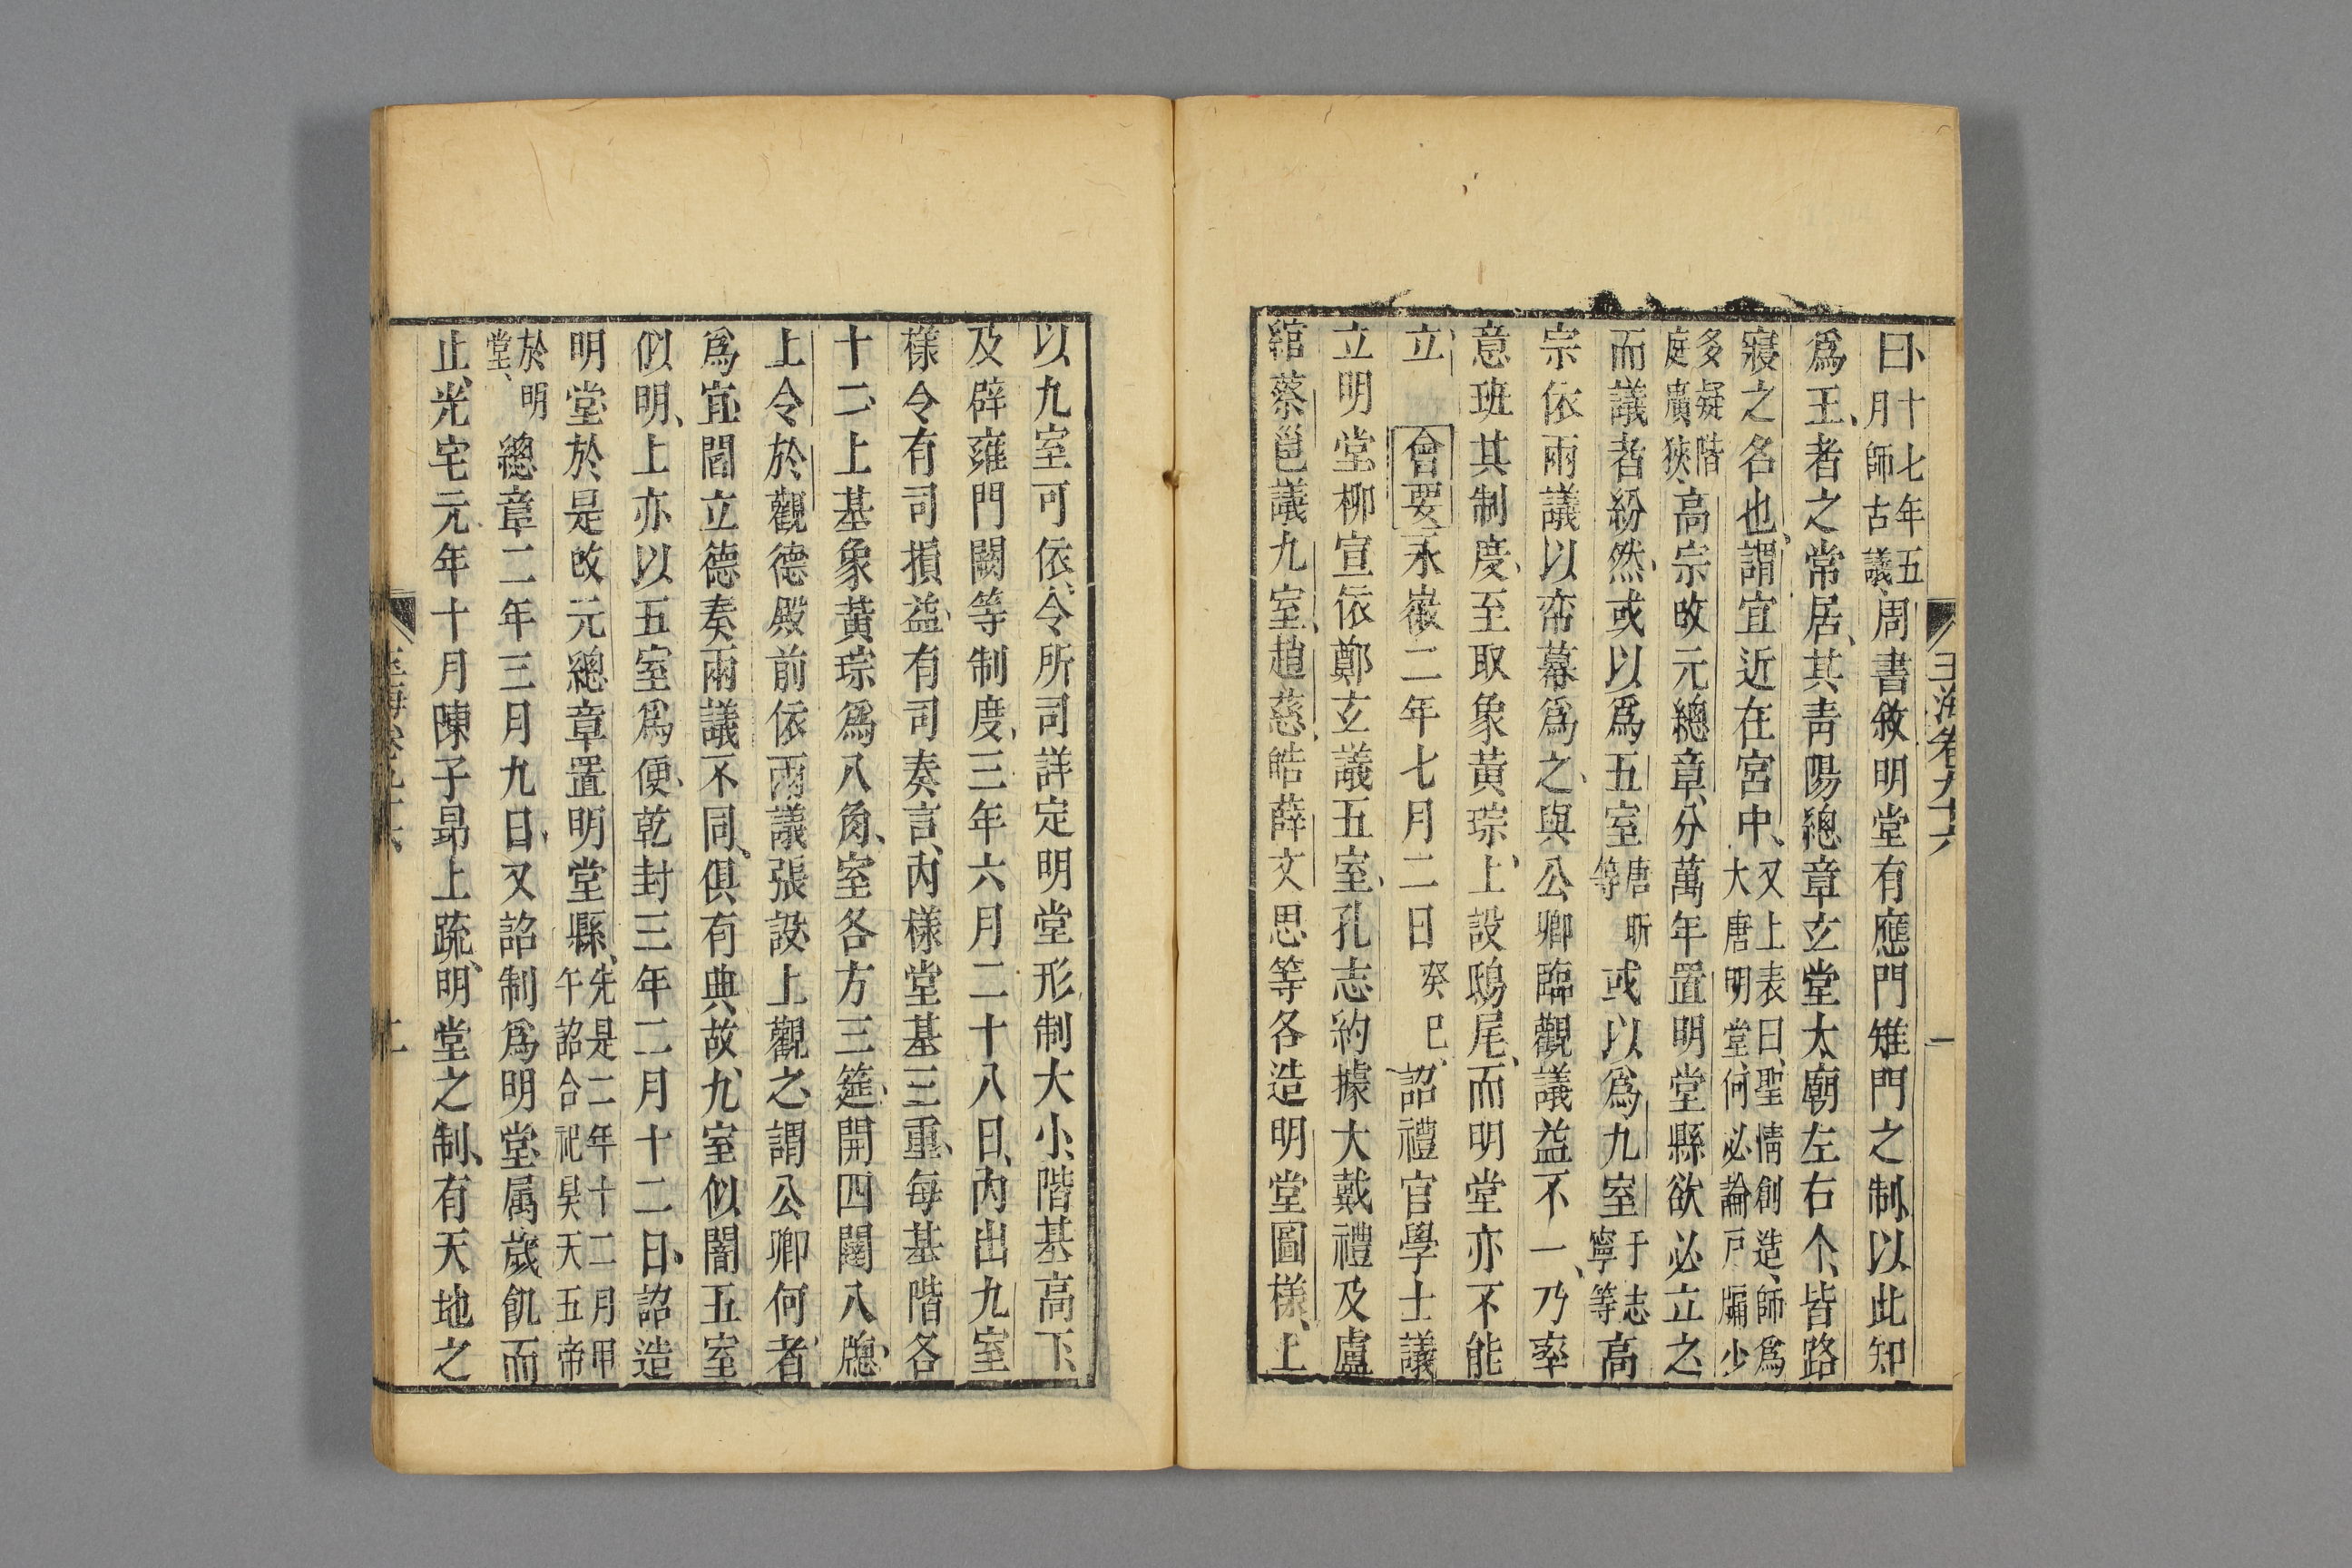 玉海卷九十六
一
曰十七年五月師古議周書敘明堂有應門雉門之制以此知
爲王者之常居其青陽總章玄堂太廟左右个皆路
寢之名也謂宜近在宮中又上表曰聖情創造師爲大唐明堂何必論戸牖少
多疑階庭廣狹高宗改元總章分萬年置明堂縣欲必立之
而議者紛然或以爲五室唐昕等或以爲九室于志寧等高
宗依兩議以帟幕爲之與公卿臨觀議益不一乃率
意班其制度至取象黃琮上設鴟尾而明堂亦不能
立會要永徽二年七月二日癸巳詔禮官學士議
立明堂柳宣依鄭玄議五室孔志約據大戴禮及盧
綰蔡邕議九室趙慈皓薛文思等各造明堂圖樣上
以九室可依令所司詳定明堂形制大小階基高下
及辟雍門闕等制度三年六月二十八日內出九室
樣令有司損益有司奏言內樣堂基三重每基階各
十二上基象黃琮爲八角室各方三筵開四闥八牕
上令於觀德殿前依兩議張設上觀之謂公卿何者
爲宜閻立德奏兩議不同俱有典故九室似闇五室
似明上亦以五室爲便乾封三年二月十二日詔造
明堂於是改元總章置明堂縣先是二年十二月甲午詔合祀昊天五帝
於明堂總章二年三月九日又詔制爲明堂屬歲飢而
止光宅元年十月陳子昻上疏明堂之制有天地之